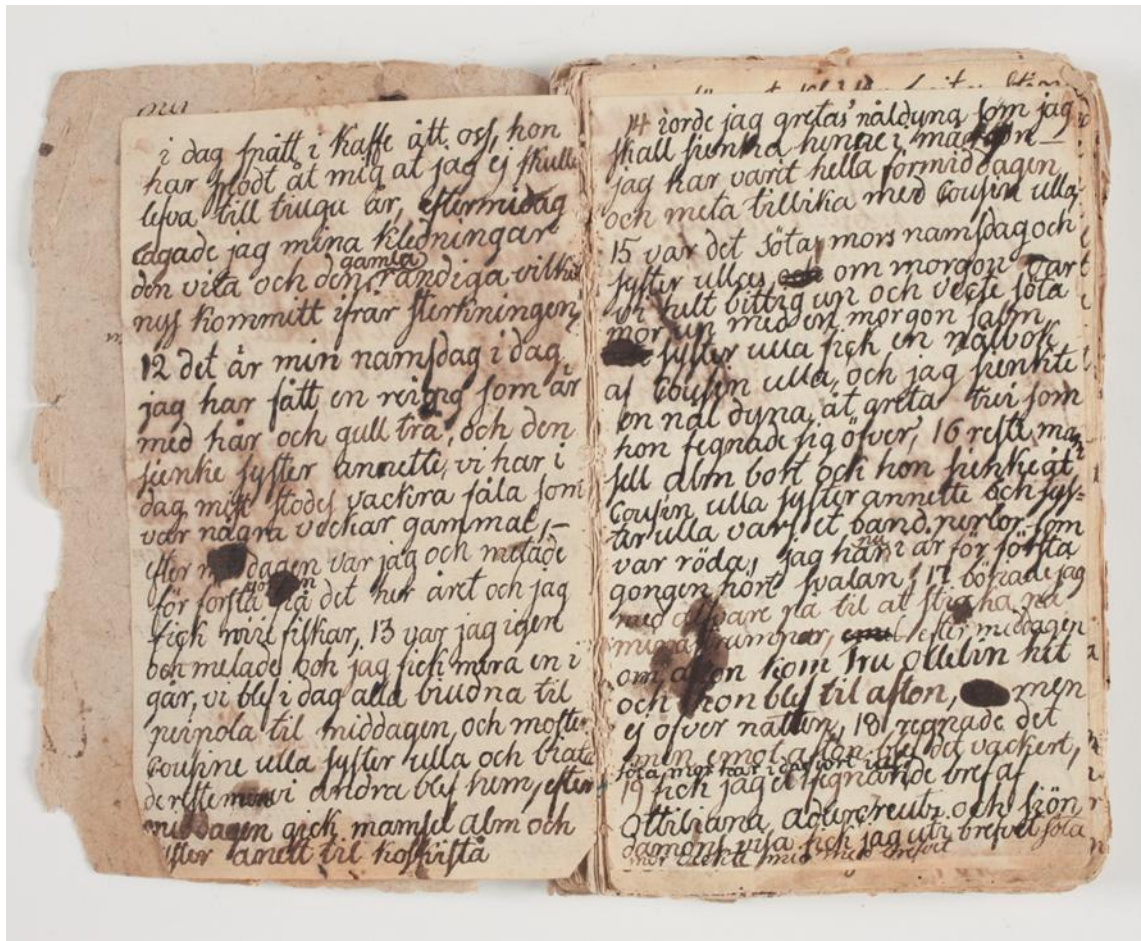 i dag spått i kaffe ått oss, hon
har spådt åt mig at jag ej skulle
lefva till tiugu år, eftermidag
lagade jag mina kledningar
den vita och den gamla randiga vilka
nys kommitt ifrar sterkningen,
12 det är min namsdag i dag
jag har fått en ring som är
med hår och gull trå, och den
sienke syster annette, vi har i
dag mist stodes vackra fåla som
var några veckar gammal, –
efter middagen var jag och metade
för första gången på det her året och jag
fick nire fiskar, 13 var jag igen
och metade och jag fick mera en i
går, vi blef i dag alla biudna til
peipola til middagen, och moster
Cousine ulla syster ulla och
reste men vi andra blef hem, efter
middagen gick mamsel alm och
syster anett til koskistå
14 iorde jag gretas nåldyna som jag
skall sienka henne i morgon –
jag har varit hella förmiddagen
och meta tillika med Cousin ulla,
15 var det söta mors namsdag och
syster ullas, om morgon
vi helt bittig up och vekte söta
mor up med en morgon salm
syster ulla fick en nålbok
af Cousin ulla, och jag sienkte
en nål dyna åt greta som
hon fegnade sig öfver, 16 reste mam
sell alm bort och hon sienkte åt
Cousin ulla syster annette och sys=
ter ulla vars et band perlor som
var röda, jag har nu i år för första
gongen hört svalan, 17 böriade jag
med alfvare na til at sticka på
mina strumpor, efter middagen
om afton kom fru ollelin hit
och hon blef til afton, men
ej öfver natten, 18 regnade det
men emot afton blef det vackert,
söta mor har i dag
19 fick jag et fegnande bref af
Ottiliana adlercreutz och siön
damons visa fick jag uti brefvet söta
mor vekte mig med brefvet